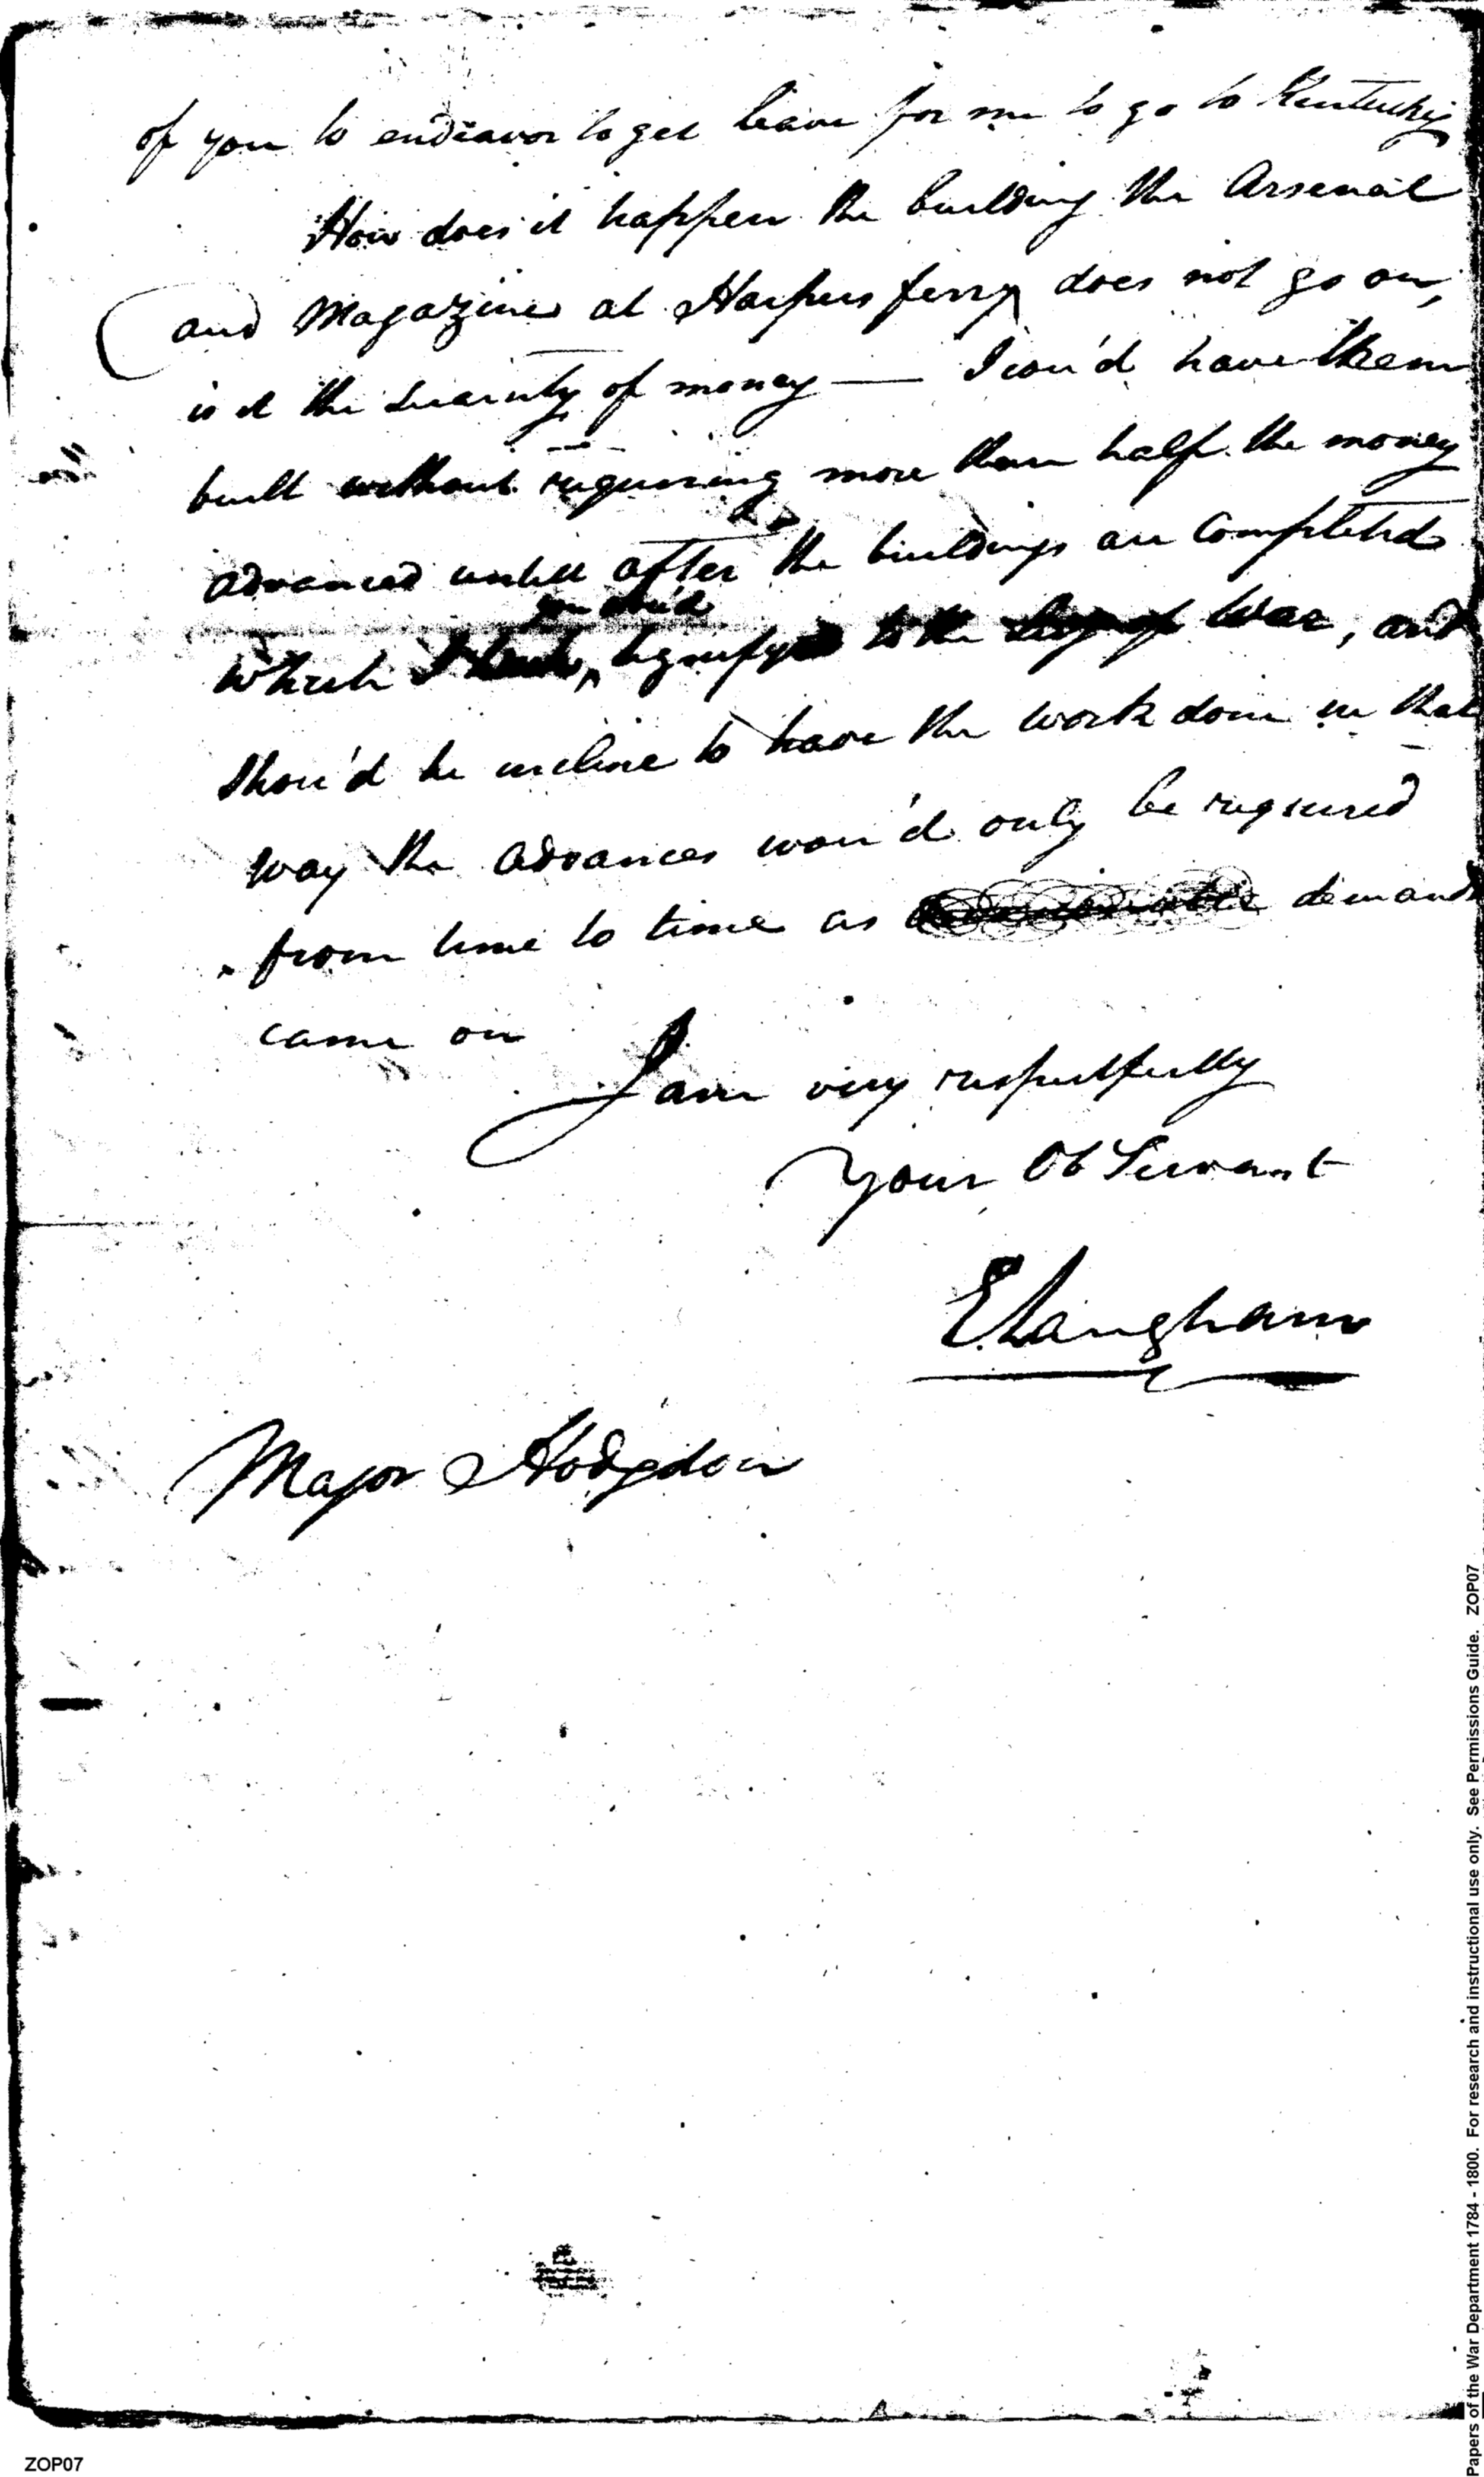 of you to endeavor to get leave for me to go to Kentucky
How does it happen the building the Arsenal
and Magazine at Harpers ferry does not go on,
is it the scarcity of money — I wou'd have them
built without requiring more than half the money
advanced untill after the buildings are Completed
you shou'd
which I signify to the Secy of War, and
shou'd he incline to have the work done in that
way the advances wou'd only be required
from time to time as demands
came on
I am very respectfully
Your Ob Servant
E Langham
Major Hodgdon
Papers of the War Department 1784 - 1800. For research and instructional use only. See Permissions Guide. ZOP07
ZOP07